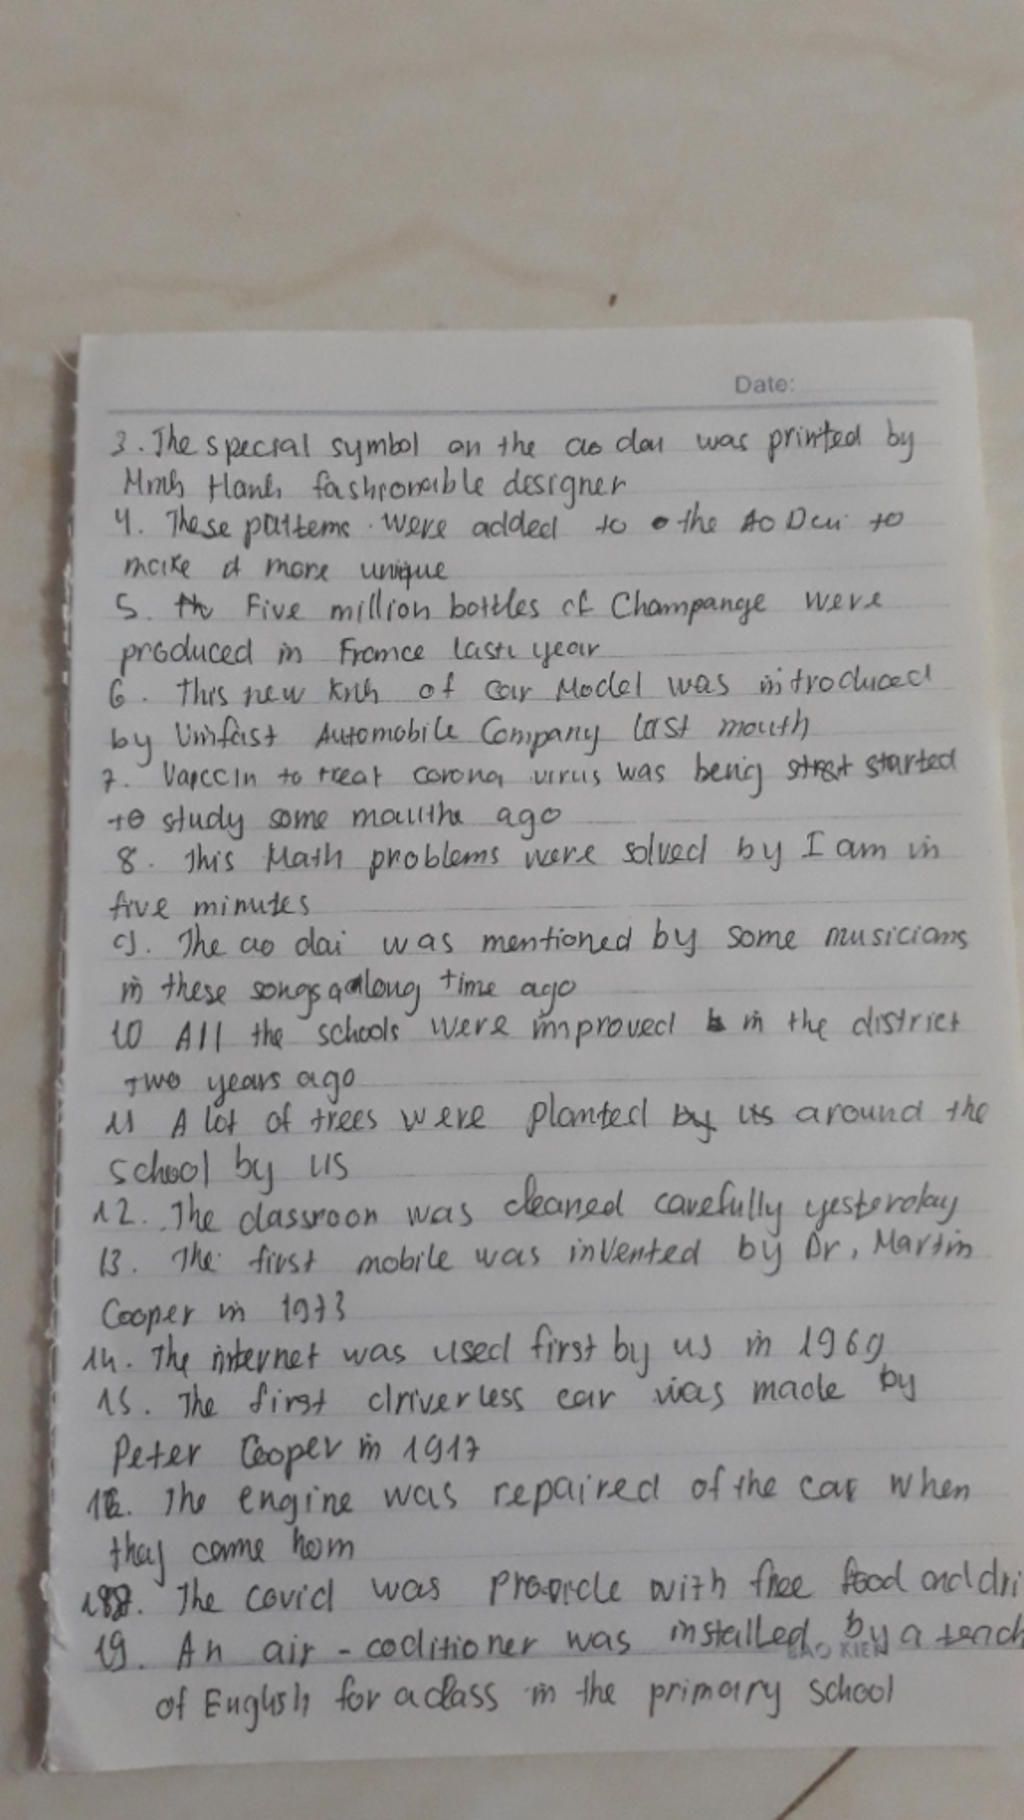 Date:
3. The special symbol on the ao dai was printed by
Minh Hanh fashionable designer
4. These patterns were added to the Ao Dai to
make it more unique
5. Five million bottles of Champange were
produced in France last year
6. This new of car Model was introduced
by Vinfast Automobile Company last mouth
7. Vapccin to treat corona virus was being started
to study some ago
8. This Math problems were solved by I am in
five minutes
9. The ao dai was mentioned by some musicians
in these songs along time ago
10 All the schools were improved in the district
Two years ago
11 A lot of trees were planted by us around the
school by us
12. The classroon was cleaned carefully yesterday
13. The first mobile was invented by Dr, Martin
Cooper in 1973
14. The internet was used first by us in 1969
15. The first driverless car was made by
Peter Cooper in 1917
16. The engine was repaired of the car when
they came hom
18. The covid was with free food and dri
19. An air-coditioner was installed by a teach
BAO XIEN
of English for a class in the primary school